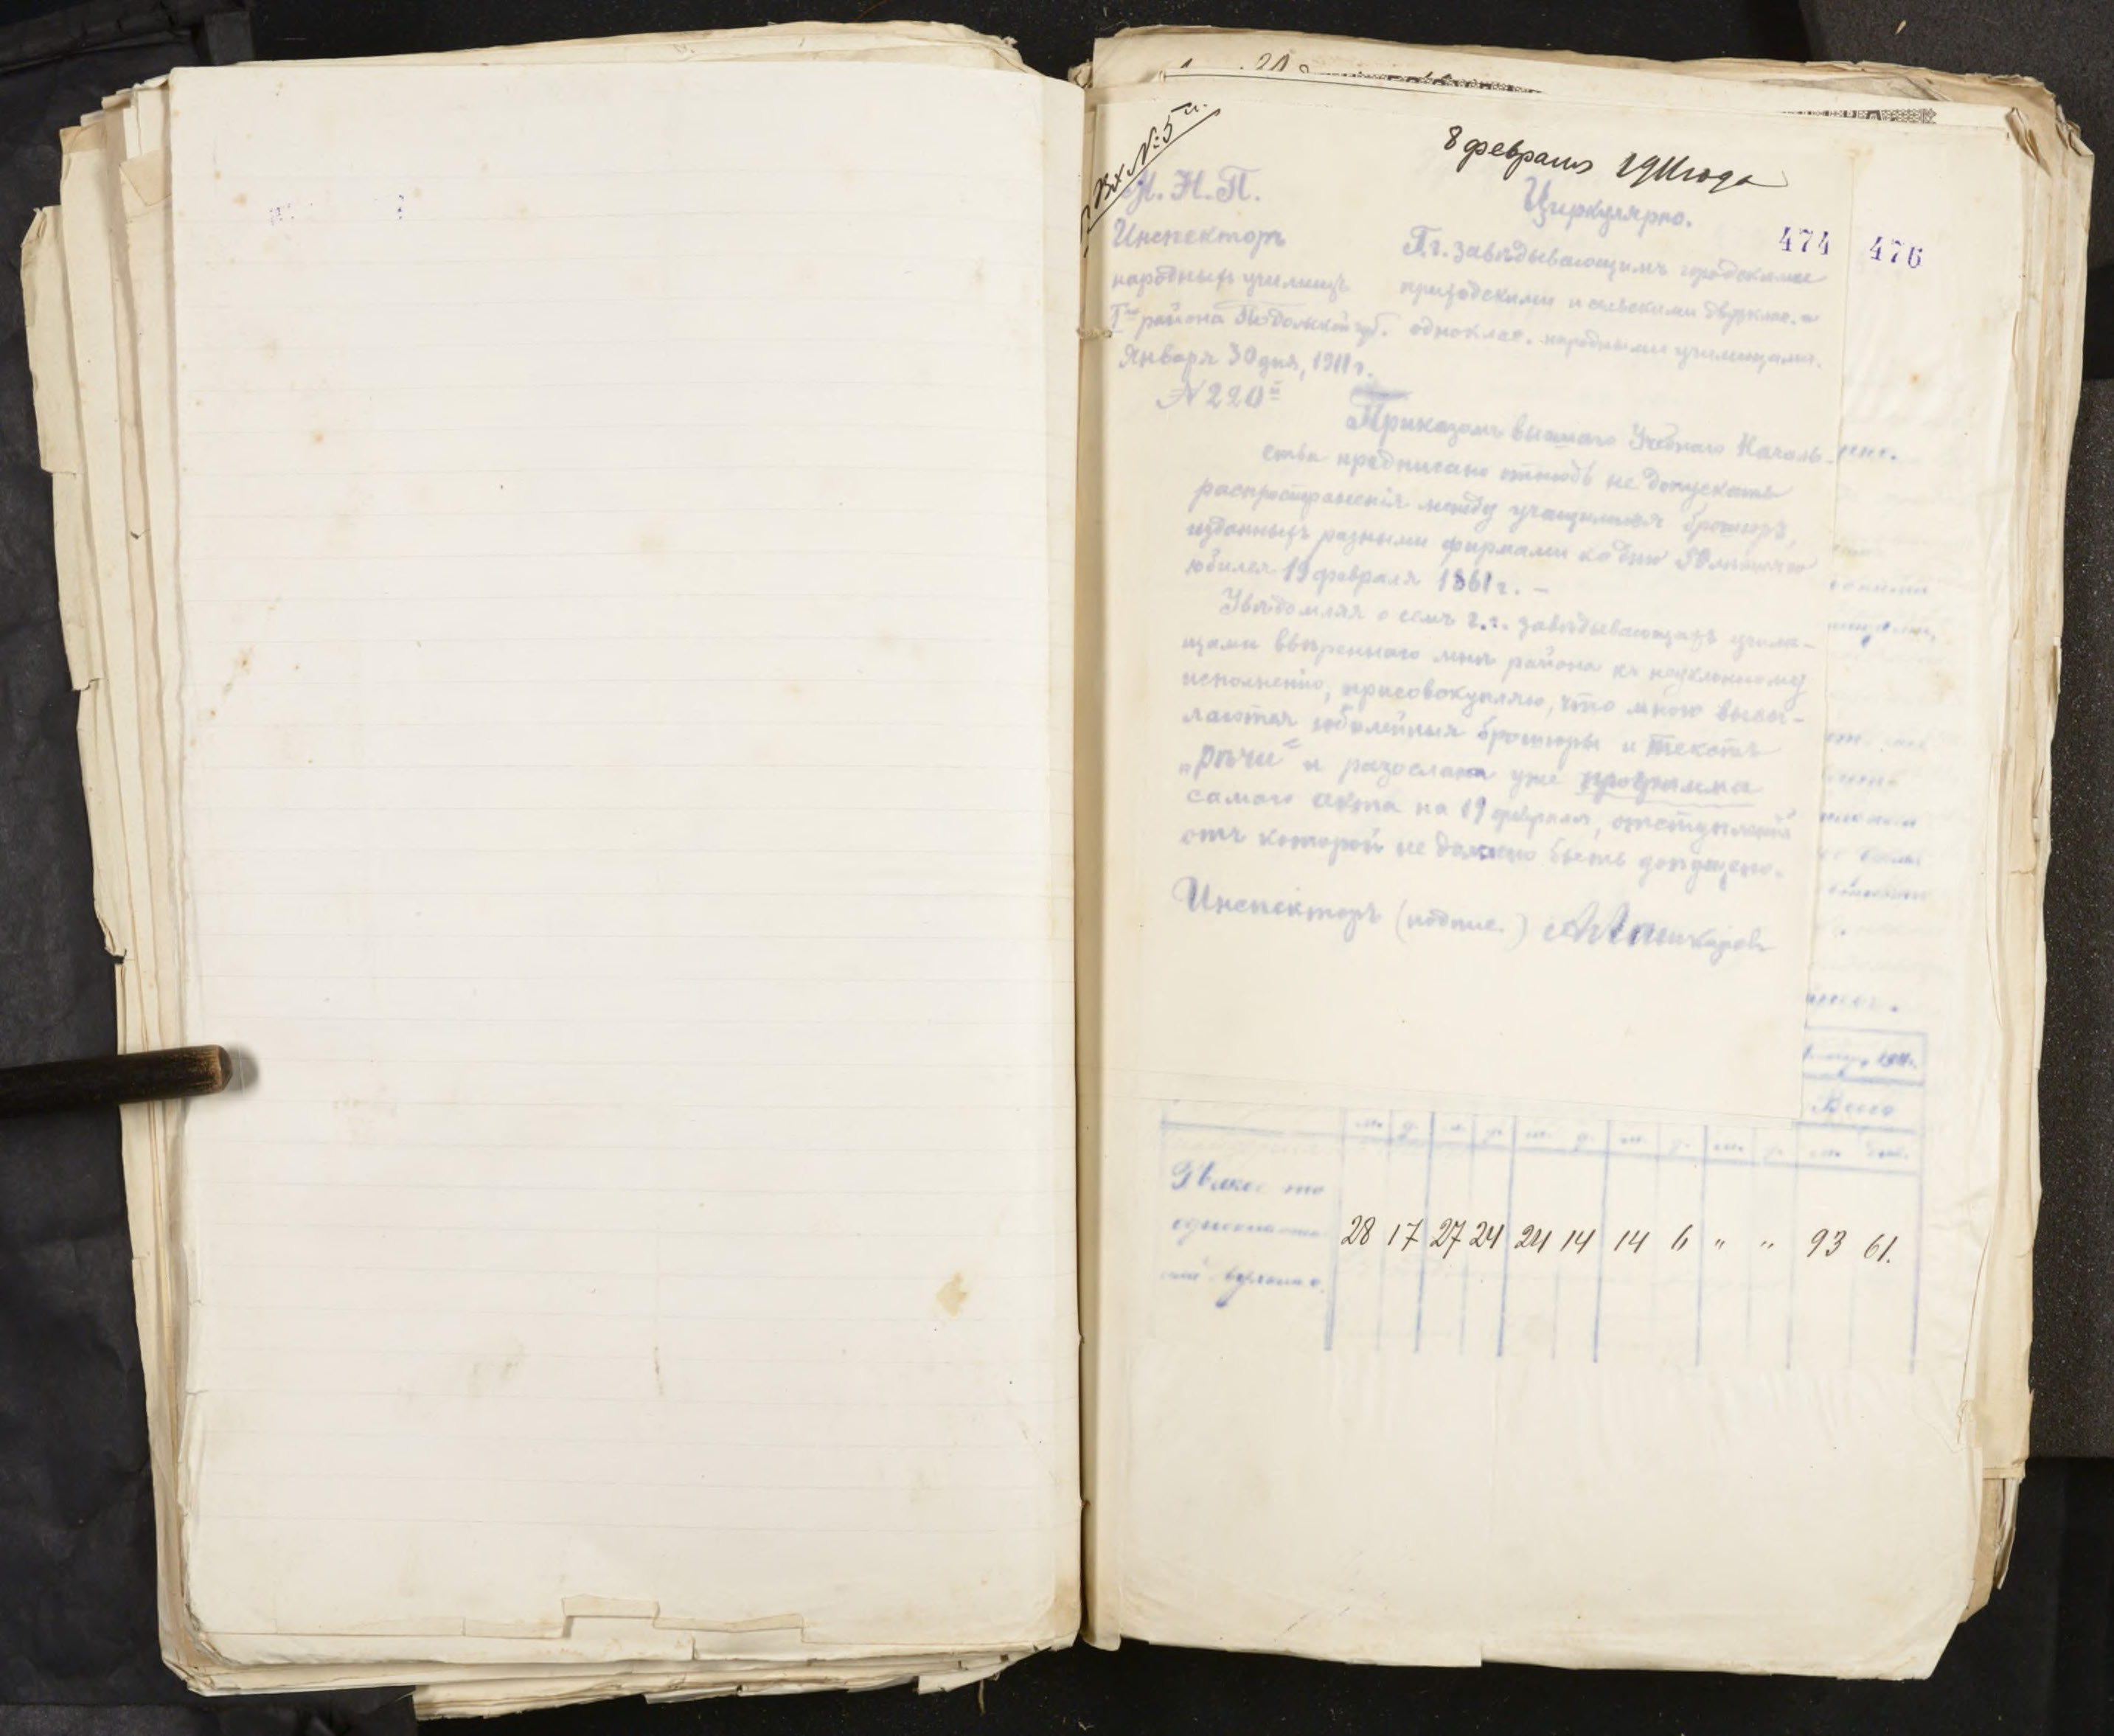 Вх. №5й
8 февраля 1911 года
М. Н. П.
Инспекторъ
народныхъ училищъ
Iго района Подольской губ.
Января 30 дня, 1911 г.
№ 220й
Циркулярно.
474 476
Г.г. Завѣдывающимъ городскими
приходскими и сельскими двухклас. и
одноклас. народными училищами.
Приказомъ высшаго Учебнаго Началь-
ства предписано отнюдь не допускать
распространенія между учащимися брошюръ,
изданныхъ разными фирмами ко дню 50 лѣтняго
юбилея 19 февраля 1861 г. –
Увѣдомляя о семъ г.г. завѣдывающихъ учили-
щами ввѣреннаго мнѣ района къ неуклонному
исполненію, присовокупляю, что мною высы-
лаются юбилейныя брошюры и текстъ
„рѣчи" и разослана уже программа
самаго акта на 19 февраля, отступленій
отъ которой не должно быть допущено.
Инспекторъ (подпис.)
Всего
м. д. м. д. м. д. м. д. м. д. м.
28 17 27 24 24 14 14 6 " " 93 61.